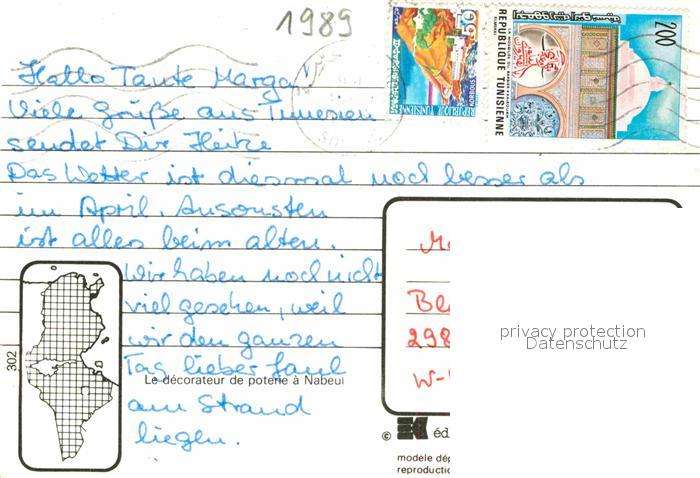 1989
60
KORBOUS
REPUBLIQUE TUNISIENNE
200
REPUBLIQUE TUNISIENNE
Hallo Tante Marga!
Viele Grüße aus Tunesien
sendet Dir Heike
Das Wetter ist diesmal noch besser als
im April. Ansonsten
ist alles beim alten.
Wir haben noch nicht
viel gesehen, weil
wir den ganzen
Tag lieber faul
am Strand
liegen.
302
Le décorateur de poterie à Nabeul
298
W-
privacy protection
Datenschutz
© éd
modèle dép
reproductio